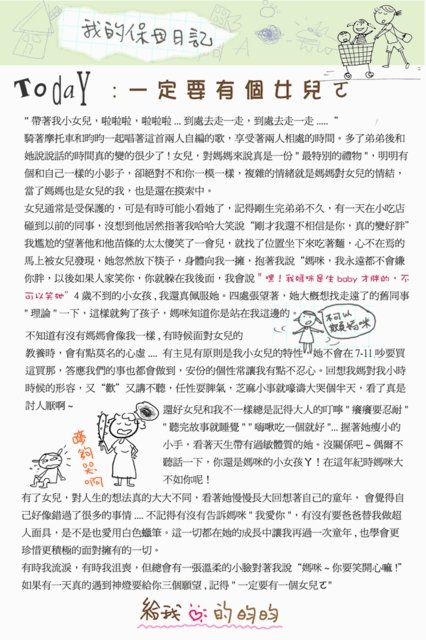 我的保母日記
TodaY：一定要有個女兒ㄛ
"帶著我小女兒，啦啦啦，啦啦啦 ... 到處去走一走，到處去走一走 ..... "
騎著摩托車和昀昀一起唱著這首兩人自編的歌，享受著兩人相處的時間。多了弟弟後和
她說說話的時間真的變的很少了！女兒，對媽媽來說真是一份"最特別的禮物"，明明有
個和自己一樣的小影子，卻絕對不和你一模一樣，複雜的情緒就是媽媽對女兒的情結，
當了媽媽也是女兒的我，也是還在摸索中。
女兒通常是受保護的，可是有時可能小看她了，記得剛生完弟弟不久，有一天在小吃店
碰到以前的同事，沒想到他居然指著我哈哈大笑說"剛才我還不相信是你，真的變好胖"
我尷尬的望著他和他苗條的太太傻笑了一會兒，就找了位置坐下來吃著麵，心不在焉的
馬上被女兒發現，她忽然放下筷子，身體向我一擁，抱著我說"媽咪，我永遠都不會嫌
你胖，以後如果人家笑你，你就躲在我後面，我會說"嘿！我媽咪是生baby才胖的，不
可以笑她" 4 歲不到的小女孩,我還真佩服她。四處張望著，她大概想找走遠了的舊同事
"理論"一下，這樣就夠了孩子，媽咪知道你是站在我這邊的。
不可以欺負媽咪
不知道有沒有媽媽會像我一樣,有時候面對女兒的
教養時，會有點莫名的心虛 .... 有主見有原則是我小女兒的特性，她不會在7-11 吵要買
這買那，答應我們的事也都會做到，安份的個性常讓我有點不忍心。回想我媽對我小時
時候的形容，又"歡"又講不聽，任性耍脾氣，芝麻小事就嚎濤大哭個半天，看了真是
討人厭啊~
還好女兒和我不一樣總是記得大人的叮嚀"癢癢要忍耐"
"聽完故事就睡覺" "嗨啾吃一個就好"... 握著她瘦小的
小手，看著天生帶有過敏體質的她。沒關係吧~偶爾不
聽話一下，你還是媽咪的小女孩ㄚ！在這年紀時媽咪大
不如你呢！
哭夠啊
有了女兒，對人生的想法真的大大不同，看著她慢慢長大回想著自己的童年， 會覺得自
己好像錯過了很多的事情 .... 不記得有沒有告訴媽咪"我愛你"，有沒有要爸爸替我做超
人面具，是不是也愛用白色蠟筆。這一切都在她的成長中讓我再過一次童年,也學會更
珍惜更積極的面對擁有的一切。
有時我流淚，有時我沮喪，但總會有一張溫柔的小臉對著我說"媽咪~你要笑開心嘛!"
如果有一天真的遇到神燈要給你三個願望,記得"一定要有一個女兒ㄛ"
給我的昀昀